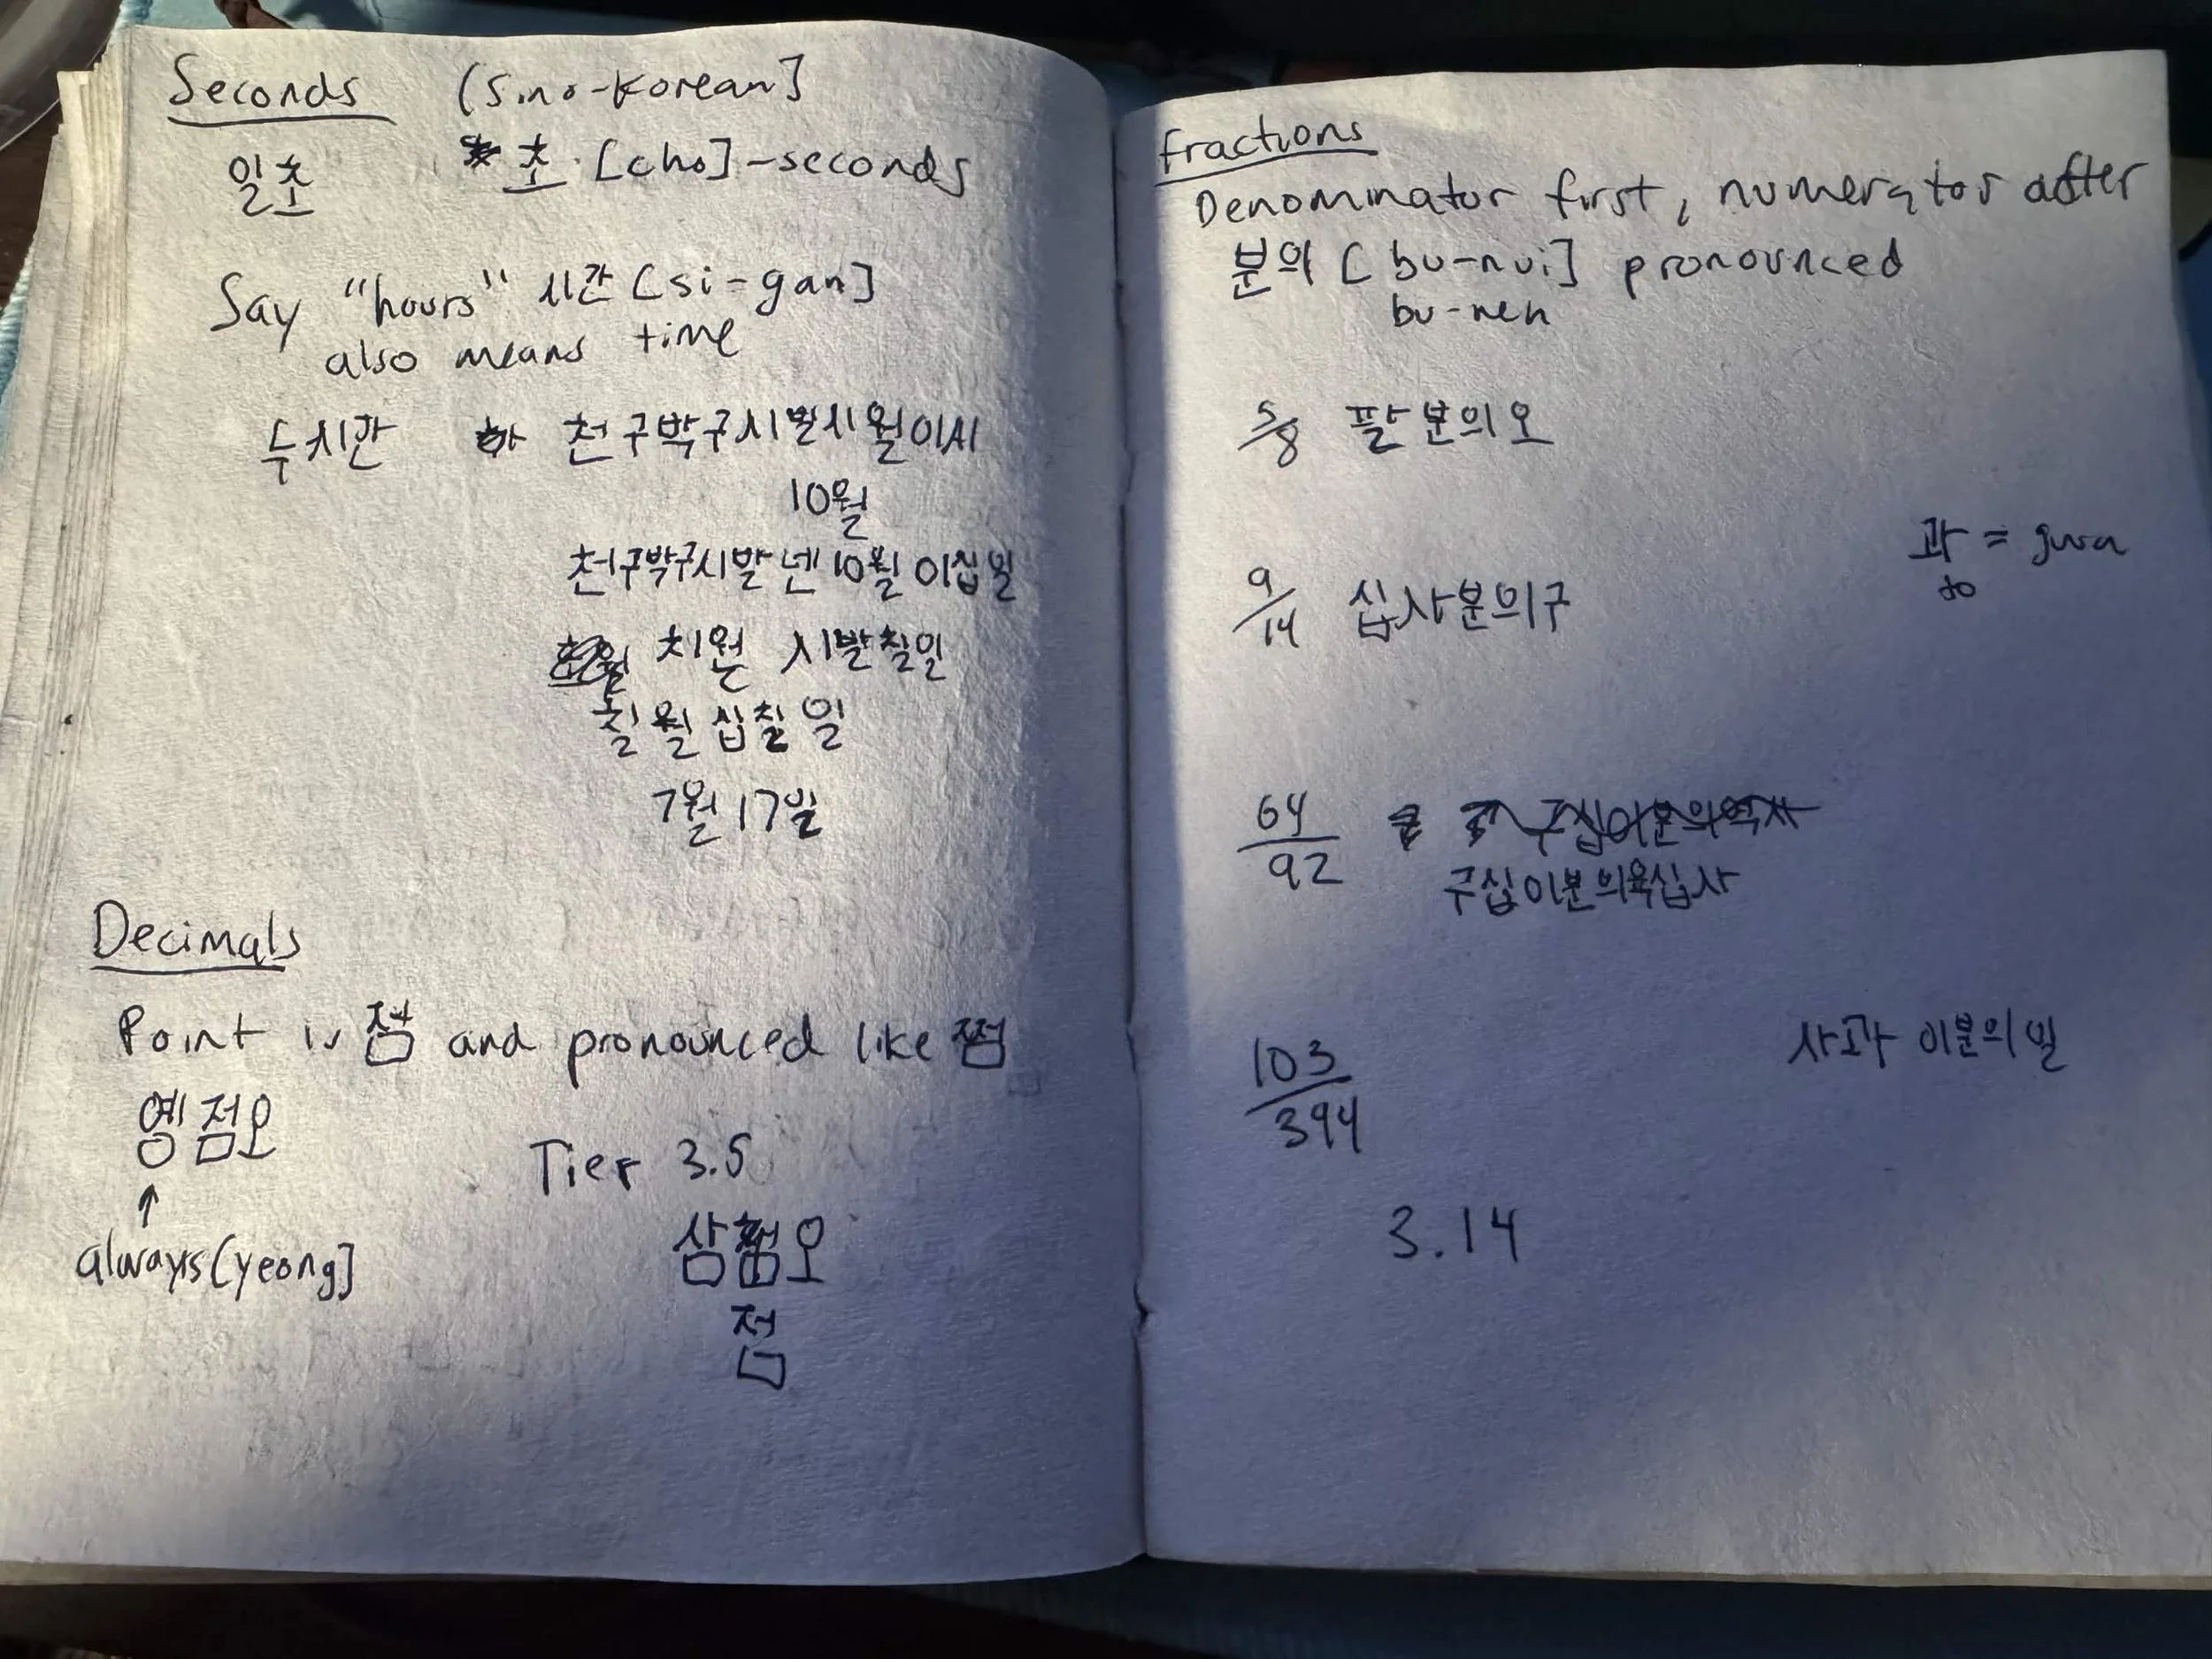 Seconds (Sino-Korean]
일초 초 [cho] - seconds
Say "hours" 시간 [si-gan]
also means time
두시간 천구박구시발시월이시
10월
천구박구시발넨10월이십일
치원 시발칠일
칠월십칠일
7월17일
Decimals
Point is 점 and pronounced like 쩜
영점오
↑
always [yeong]
Tier 3.5
삼점오
점
fractions
Denominator first, numerator after
분의 [bu-nui] pronounced
bu-neh
5/8 팔분의오
과 = gwa
to
9/14 십사분의구
64/92 구십이분의역사
구십이분의육십사
사과 이분의일
103/394
3.14